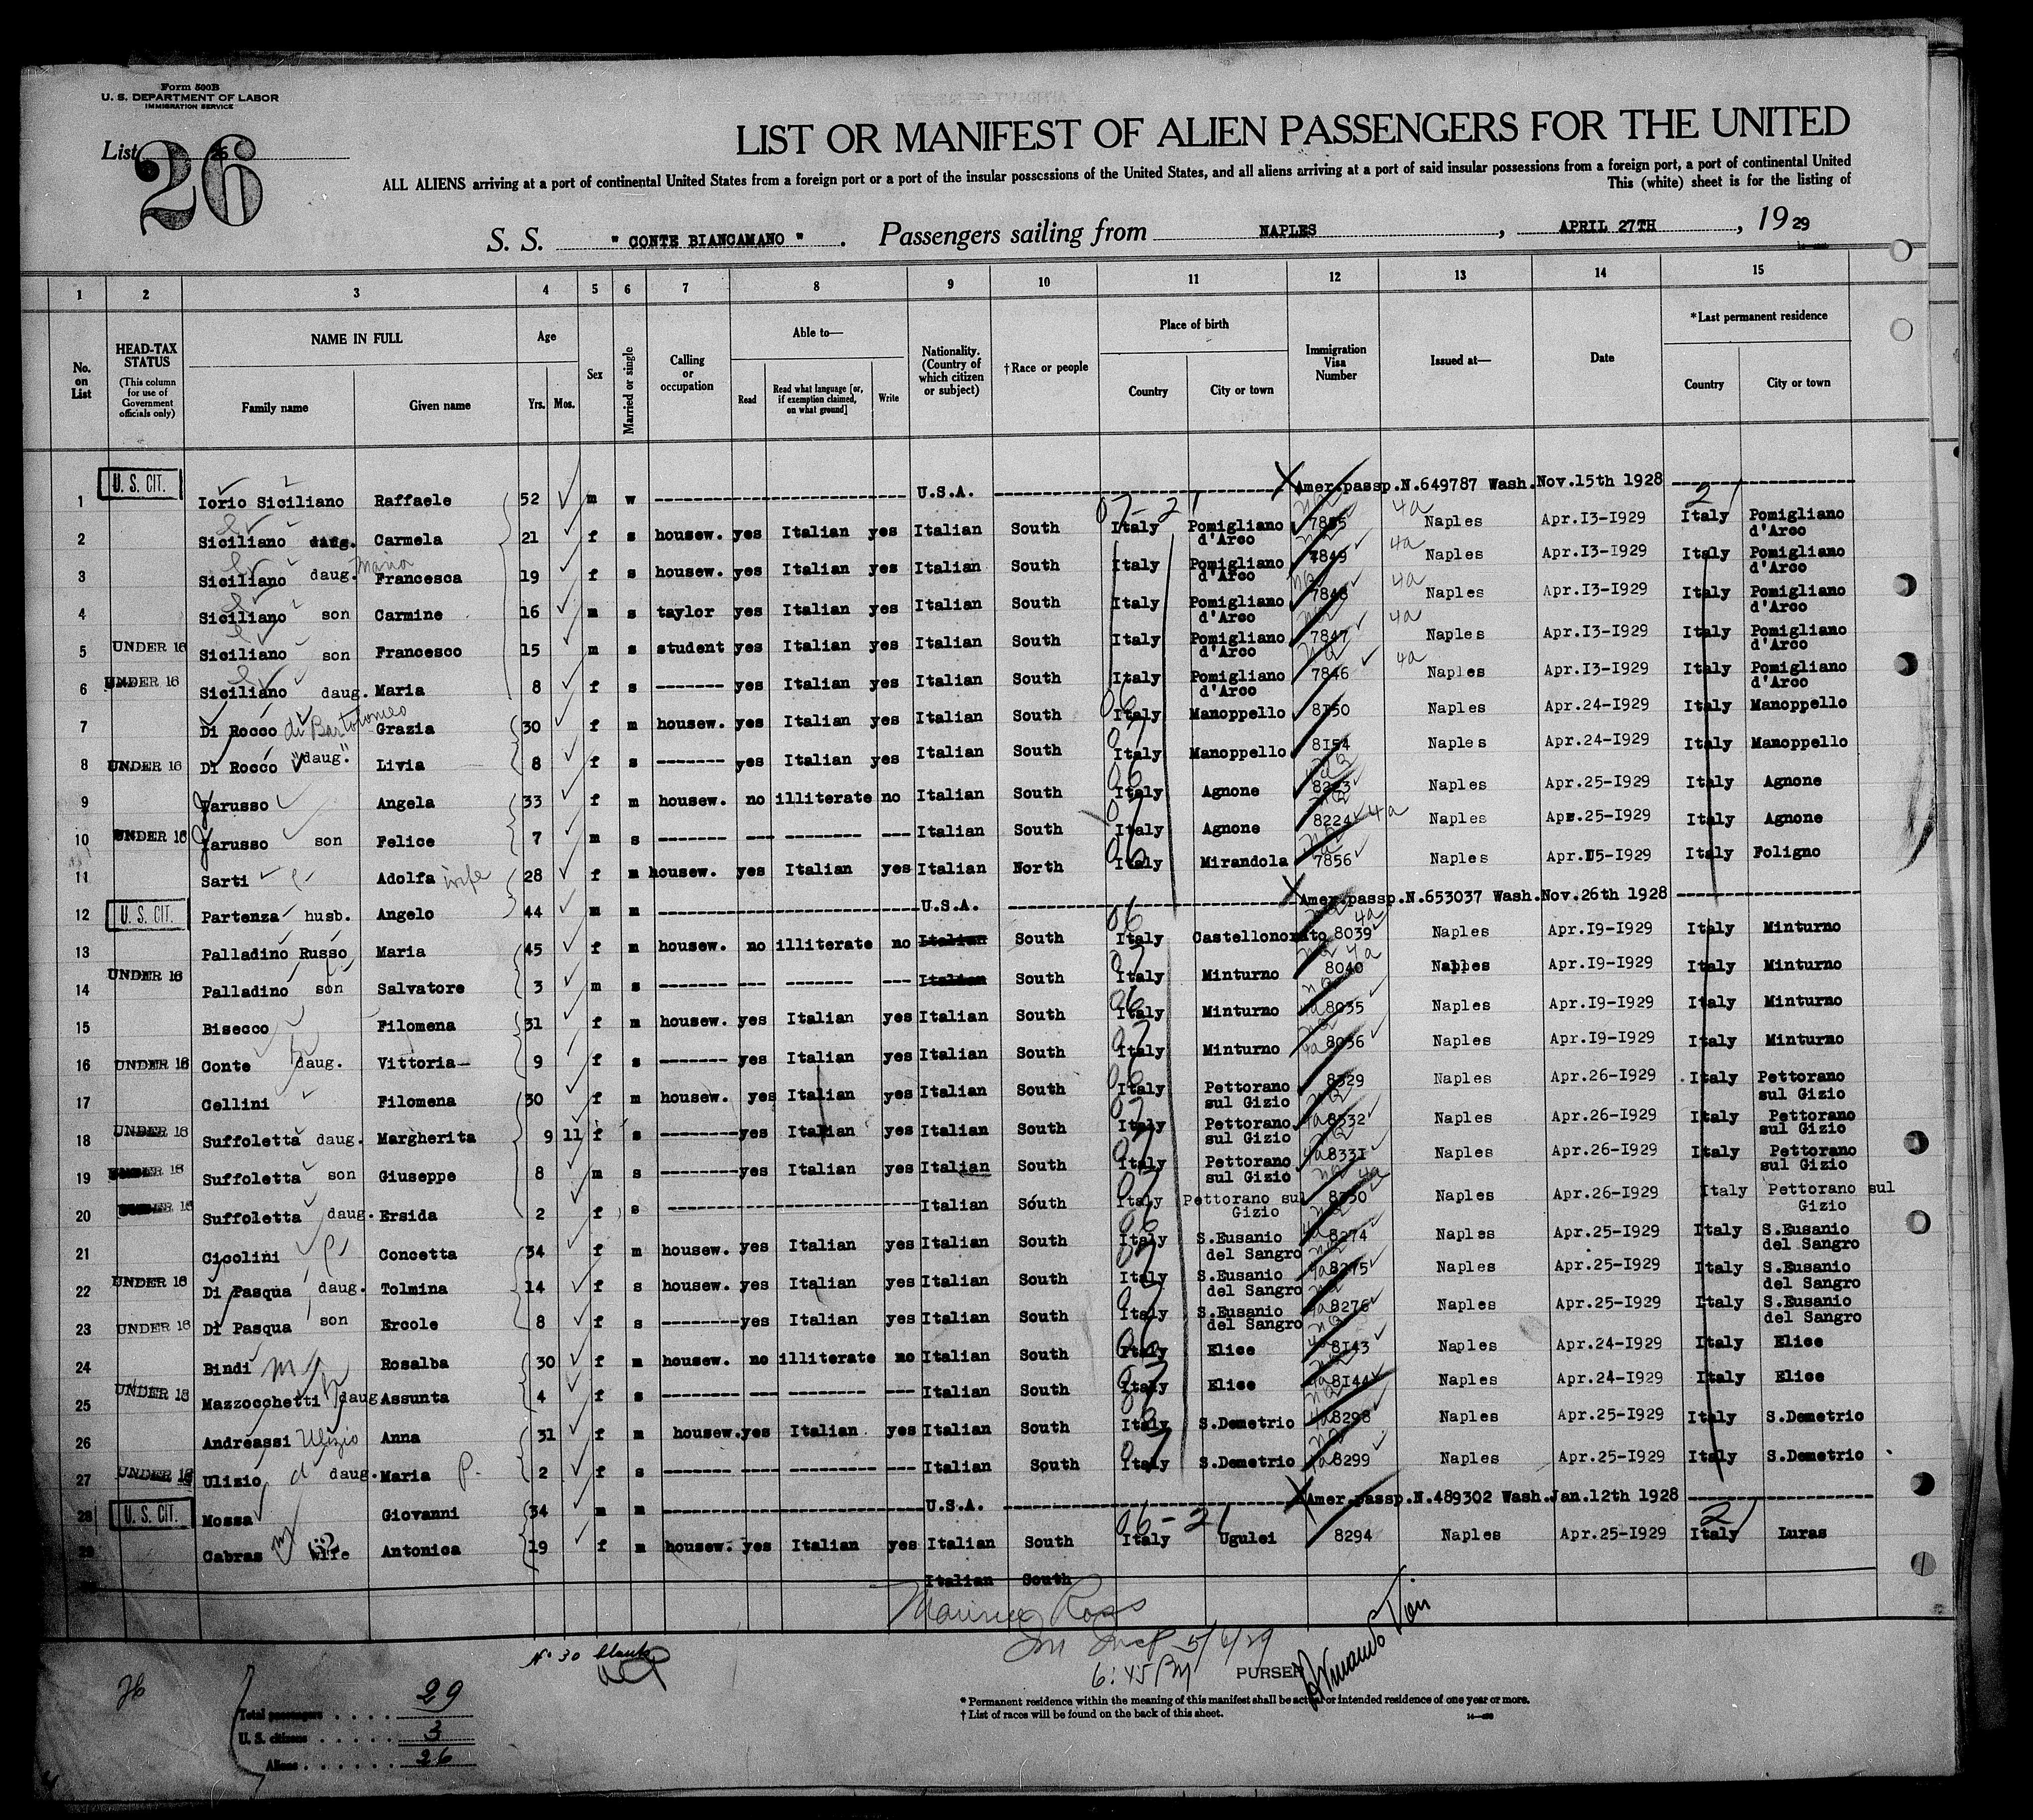 Form 500B
U. S. DEPARTMENT OF LABOR
IMMIGRATION SERVICE
List 26
26
LIST OR MANIFEST OF ALIEN PASSENGERS FOR THE UNITED
ALL ALIENS arriving at a port of continental United States from a foreign port or a port of the insular possessions of the United States, and all aliens arriving at a port of said insular possessions from a foreign port, a port of continental United
This (white) sheet is for the listing of
S. S. " CONTE BIANCAMANO " . Passengers sailing from NAPLES , APRIL 27TH , 19 29
1 2 3 4 5 6 7 8 9 10 11 12 13 14 15
No. on List HEAD-TAX STATUS (This column for use of Government officials only) NAME IN FULL Family name Given name Age Yrs. Mos. Sex Married or single Calling or occupation Able to— Read Read what language [or, if exemption claimed, on what ground] Write Nationality. (Country of which citizen or subject) †Race or people Place of birth Country City or town Immigration Visa Number Issued at— Date *Last permanent residence Country City or town
1 U. S. CIT. Iorio Siciliano Raffaele 52 m w U.S.A. Amer.passp.N.649787 Wash.Nov.15th 1928
2 Siciliano daug. Carmela 21 f s housew. yes Italian yes Italian South Italy Pomigliano d'Arco 7855 4a Naples Apr.I3-I929 Italy Pomigliano d'Arco
3 Siciliano daug. Maria Francesca 19 f s housew. yes Italian yes Italian South Italy Pomigliano d'Arco 7849 4a Naples Apr.I3-I929 Italy Pomigliano d'Arco
4 Siciliano son Carmine 16 m s taylor yes Italian yes Italian South Italy Pomigliano d'Arco 7848 4a Naples Apr.I3-I929 Italy Pomigliano d'Arco
5 UNDER 16 Siciliano son Francesco 15 m s student yes Italian yes Italian South Italy Pomigliano d'Arco 7847 4a Naples Apr.I3-I929 Italy Pomigliano d'Arco
6 UNDER 16 Siciliano daug. Maria 8 f s ------- yes Italian yes Italian South Italy Pomigliano d'Arco 7846 4a Naples Apr.I3-I929 Italy Pomigliano d'Arco
7 Di Rocco di Bartolomeo Grazia 30 f m housew. yes Italian yes Italian South Italy Manoppello 8I50 Naples Apr.24-I929 Italy Manoppello
8 UNDER 16 Di Rocco "daug." Livia 8 f s ------- yes Italian yes Italian South Italy Manoppello 8I54 Naples Apr.24-I929 Italy Manoppello
9 Jarusso Angela 33 f m housew. no illiterate no Italian South Italy Agnone 8223 Naples Apr.25-I929 Italy Agnone
10 UNDER 16 Jarusso son Felice 7 m s ------- --- -------- --- Italian South Italy Agnone 8224 4a Naples Apr.25-I929 Italy Agnone
11 Sarti Adolfa wife 28 f m housew. yes Italian yes Italian North Italy Mirandola 7856 Naples Apr.I5-I929 Italy Foligno
12 U. S. CIT. Partenza husb. Angelo 44 m m U.S.A. Amer.passp.N.653037 Wash.Nov.26th 1928
13 Palladino Russo Maria 45 f m housew. no illiterate no Italian South Italy Castellonorato 8039 4a Naples Apr.I9-I929 Italy Minturno
14 UNDER 16 Palladino son Salvatore 3 m s ------- --- ------- --- Italian South Italy Minturno 8040 4a Naples Apr.I9-I929 Italy Minturno
15 Bisecco Filomena 31 f m housew. yes Italian yes Italian South Italy Minturno 8035 Naples Apr.I9-I929 Italy Minturno
16 UNDER 16 Conte daug. Vittoria 9 f s ------- yes Italian yes Italian South Italy Minturno 8036 Naples Apr.I9-I929 Italy Minturno
17 Cellini Filomena 30 f m housew. yes Italian yes Italian South Italy Pettorano sul Gizio 8329 Naples Apr.26-I929 Italy Pettorano sul Gizio
18 UNDER 16 Suffoletta daug. Margherita 9 11 f s -------- yes Italian yes Italian South Italy Pettorano sul Gizio 8332 Naples Apr.26-I929 Italy Pettorano sul Gizio
19 UNDER 16 Suffoletta son Giuseppe 8 m s -------- yes Italian yes Italian South Italy Pettorano sul Gizio 833I Naples Apr.26-I929 Italy Pettorano sul Gizio
20 UNDER 16 Suffoletta daug. Ersida 2 f s Italian South Italy Pettorano sul Gizio 8330 4a Naples Apr.26-I929 Italy Pettorano sul Gizio
21 Cicolini Concetta 34 f m housew. yes Italian yes Italian South Italy S.Eusanio del Sangro 8274 Naples Apr.25-I929 Italy S.Eusanio del Sangro
22 UNDER 16 Di Pasqua daug. Tolmina 14 f s housew. yes Italian yes Italian South Italy S.Eusanio del Sangro 8275 Naples Apr.25-I929 Italy S.Eusanio del Sangro
23 UNDER 16 Di Pasqua son Ercole 8 f s -------- yes Italian yes Italian South Italy S.Eusanio del Sangro 8276 Naples Apr.25-I929 Italy S.Eusanio del Sangro
24 Bindi Rosalba 30 f m housew. no illiterate no Italian South Italy Elice 8I43 Naples Apr.24-I929 Italy Elice
25 UNDER 16 Mazzocchetti daug Assunta 4 f s -------- --- -------- --- Italian South Italy Elice 8I44 Naples Apr.24-I929 Italy Elice
26 Andreassi Ulizio Anna 31 f m housew. yes Italian yes Italian South Italy S.Demetrio 8298 Naples Apr.25-I929 Italy S.Demetrio
27 UNDER 16 Ulizio daug. Maria 2 f s ------- ---- --------- --- Italian South Italy S.Demetrio 8299 Naples Apr.25-I929 Italy S.Demetrio
28 U. S. CIT. Mossa Giovanni 34 m m U.S.A. Amer.passp.N.489302 Wash.Jan.12th 1928
29 Cabras wife Antonica 19 f m housew. yes Italian yes Italian South Italy Ugulei 8294 Naples Apr.25-I929 Italy Luras
Italian South
Maurice Ross
Im Insp 5/6/29
6:45 PM
N° 30 blank
PURSER
* Permanent residence within the meaning of this manifest shall be actual or intended residence of one year or more.
† List of races will be found on the back of this sheet.
Total passengers . . . . 29
U. S. citizens . . . . . 3
Aliens . . . . . . 26